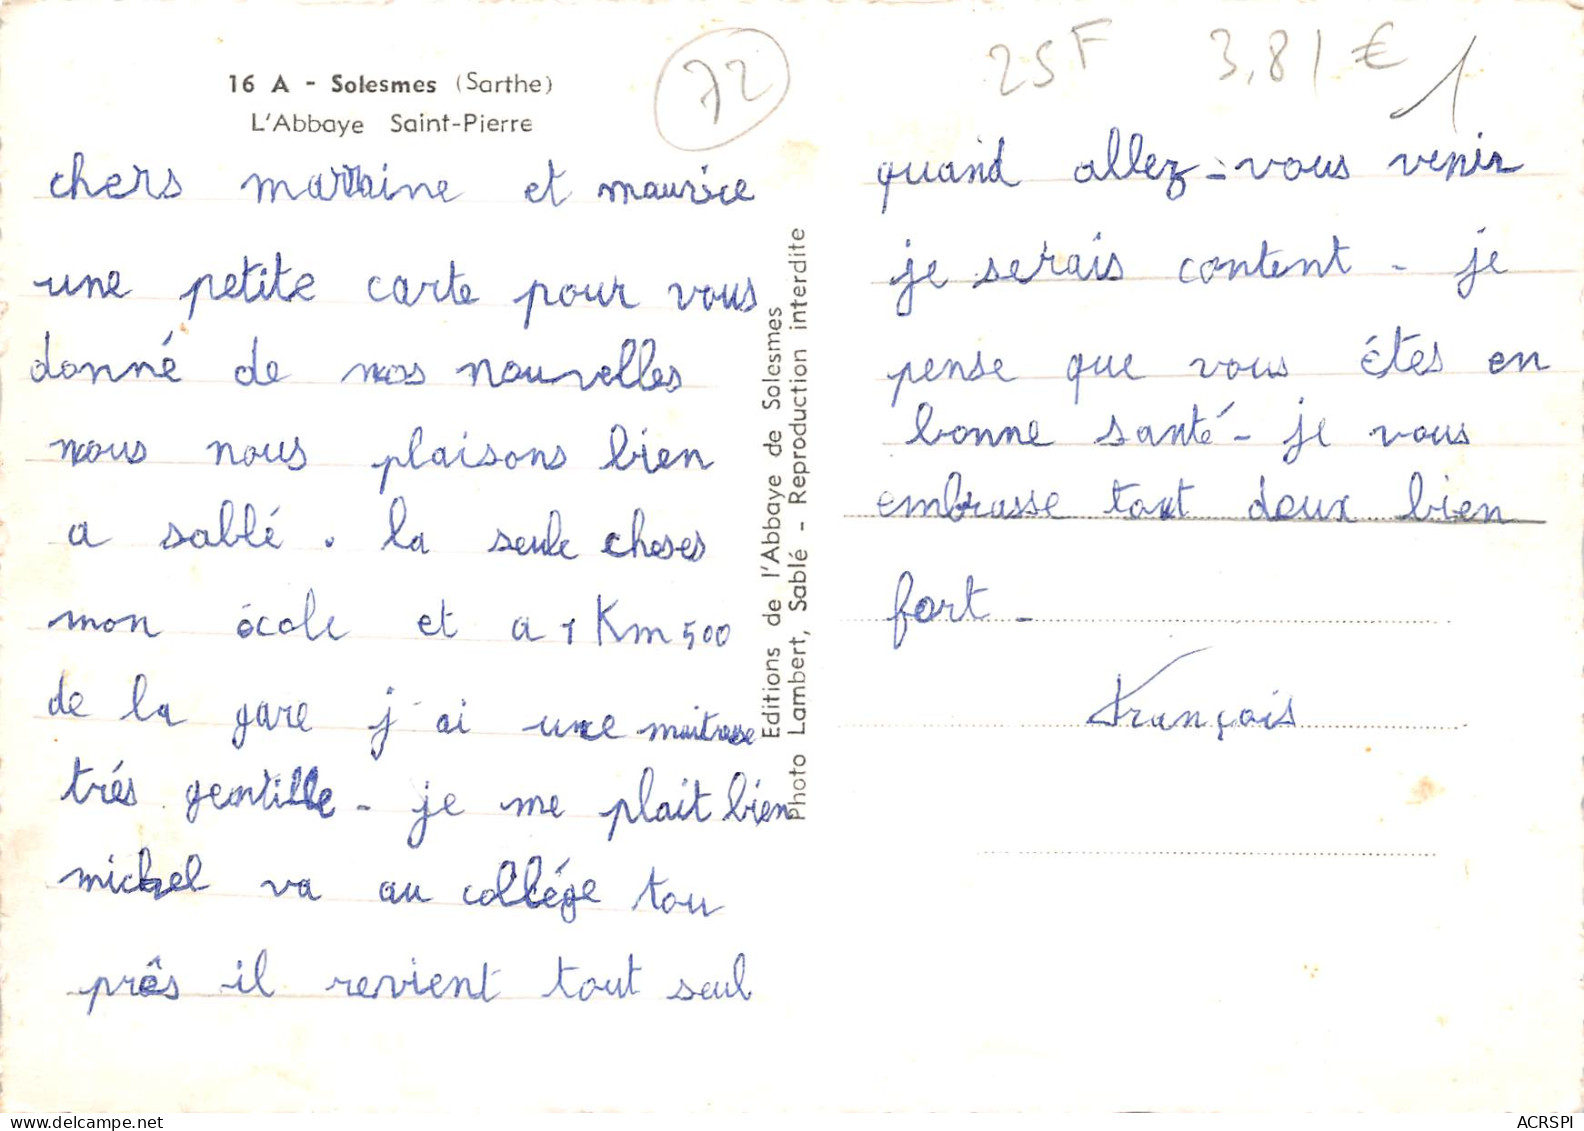 16 A - Solesmes (Sarthe)
L'Abbaye Saint-Pierre
72
25F 3,81 €
1
chers marraine et maurice
une petite carte pour vous
donné de nos nouvelles
nous nous plaisons bien
a sablé . la seule choses
mon école et a 1 Km 500
de la gare j'ai une maitresse
trés gentille - je me plait bien
michel va au collége tou
près il revient tout seul
Editions de l'Abbaye de Solesmes
Photo Lambert, Sablé - Reproduction interdite
quand allez-vous venir
je serais content - je
pense que vous étes en
bonne santé - je vous
embrasse tout deux bien
fort -
François
ACRSPI